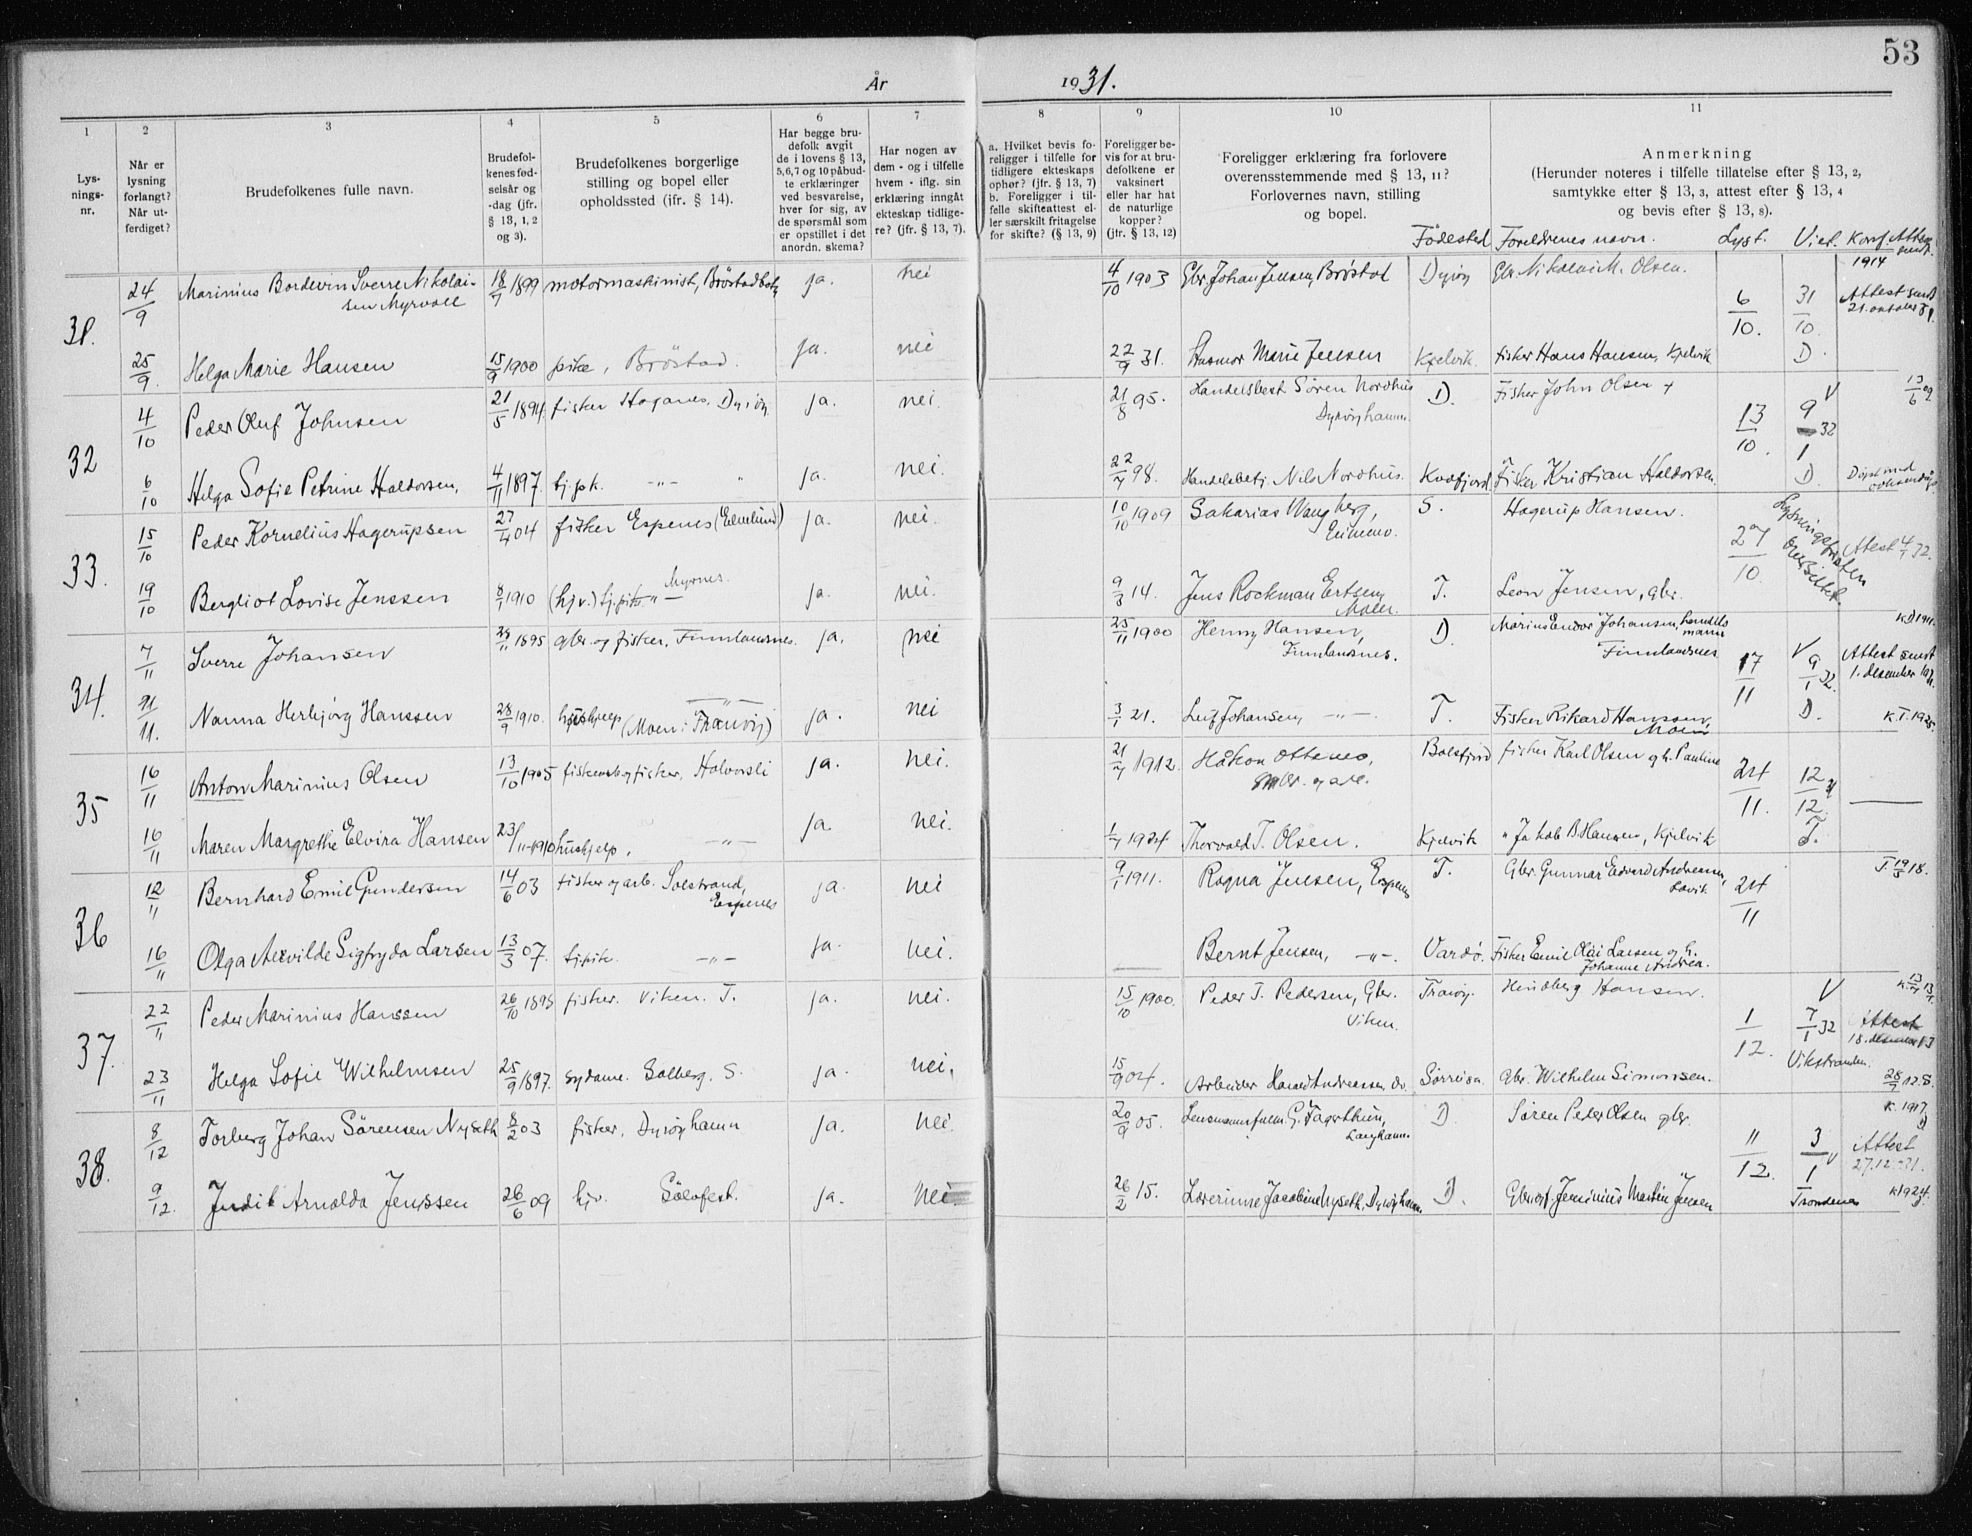 53
År 1931.
1 2 3 4 5 6 7 8 9 10 11
Lys-
nings-
nr.
Når er
lysning
forlangt?
Når ut-
ferdiget?
Brudefolkenes fulle navn.
Brudefol-
kenes fød-
selsår og
-dag (jfr.
§ 13, 1, 2
og 3).
Brudefolkenes borgerlige
stilling og bopel eller
opholdssted (jfr. § 14).
Har begge bru-
defolk avgit
de i lovens § 13,
5,6,7 og 10 påbud-
te erklæringer
ved besvarelse,
hver for sig, av
de spørsmål som
er opstillet i det
anordn. skema?
Har nogen av
dem - og i tilfelle
hvem - iflg. sin
erklæring inngåt
ekteskap tidlige-
re? (jfr. § 13, 7).
a. Hvilket bevis fo-
religger i tilfelle for
tidligere ekteskaps
ophør? (jfr. § 13, 7)
b. Foreligger i til-
felle skifteattest el-
ler særskilt fritagelse
for skifte? (§ 13, 9)
Foreligger be-
vis for at bru-
defolkene er
vaksinert
eller har hat
de naturlige
kopper?
(jfr. § 13, 12)
Foreligger erklæring fra forlovere
overensstemmende med § 13, 11?
Forlovernes navn, stilling
og bopel.
Anmerkning
(Herunder noteres i tilfelle tillatelse efter § 13, 2,
samtykke efter § 13, 3, attest efter § 13, 4
og bevis efter § 13, 8).
Fødested Foreldrenes navn. Lyst. Viet. Konf. Attest sendt
31. 24/9 Marinius Bordevin Sverre Nikolai-
sen Myrvoll 18/7 1899 motormaskinist, Bröstadbotn ja. nei 4/10 1903 Gbr. Johan Jensen, Brøstad Dyröy Gbr. Nikolai M. Olsen. 6/10. 31/10. 1914 Attest sendt 21. oktober 31.
25/9. Helga Marie Hansen 15/9 1900 pike, Bröstad. ja. nei 22/9 31. Husmor Marie Jensen Kjelvik fisker Hans Hansen, Kjelvik D.
32 4/10 Peder Oluf Johnsen 21/5 1894. fisker Hoganes. Dyröy. ja. nei. 21/8 95. Handelsbest. Søren Nordhus
Dyröyhamn. D. Fisker John Olsen + 13/10. V 9/1 32 13/6 09
6/10 Helga Sofie Petrine Haldorsen, 4/11 1897. tj.pk. -"- " ja. nei. 22/7 98. Handelsbetj. Nils Nordhus. Kvæfjord. Fisker Kristian Haldorsen. D.
33. 15/10 Peder Kornelius Hagerupsen 27/4 04 fisker Espenes (Edelund) ja. nei. 10/10 1909 Sakarias Wangberg, S. Hagerup Hansen. 27/10. Lysningsfristen oversittet. Attest 4/1 32.
19/10 Bergliot Lovise Jenssen 8/1 1910 (hjv.) tj.pike -"- Myrnes. ja. nei. 9/3 14. Jens Rockman Ertsen,
Maler. T. Leon Jensen, gbr.
34. 7/11 Sverre Johansen 24/11 1895 gbr. og fisker, Finnlandsnes. ja. nei 25/11 1900 Henny Hansen,
Finnlandsnes. D. Marius Endor Johansen, handelsmann
Finnlandsnes 17/11 V 9/1 32. K.D 1911. Attest sendt 1. desember 1931.
11/11. Nanna Herbjørg Hanssen 28/9 1910. hushjelp -"- (Moen i Tranöy) ja. nei 3/1 21. Leif Johansen, -"-. T. Fisker Rikard Hanssen,
Moen D. K.T. 1925.
35 16/11 Anton Marinius Olsen 13/10 1905 fisker, Halvorsli ja. nei. 21/7 1912. Håkon Ottemo, Balsfjord fisker Karl Olsen og h. Pauline 24/11. 12/12 31
16/11 Maren Margrethe Elvira Hansen 23/11-1910 hushjelp, -"- ja. nei. 1/7 1924 Thorvald T. Olsen. Kjelvik " Jakob B Hansen, Kjelvik T.
36 12/11 Bernhard Emil Gundersen 14/6 03 fisker og arb. Solstrand,
Espenes ja. nei 9/1 1911. Ragna Jensen, Espenes T. Gbr. Gunnar Edvard Andreassen,
Lavik 24/11 T. 19/5 18.
16/11 Olga Alvilde Sigfryda Larsen 13/3 07. tj.pik. -"- ja. nei. Bernt Jensen, -"-. Vardö. Fisker Emil Olai Larsen og h.
Johanne Andrea.
37. 22/11 Peder Marinius Hanssen 26/10 1898 fisker. Viken. T. ja. nei. 15/10 1900. Peder T. Pedersen, Gbr.
Viken. Tranöy. Heidberg Hansen. 1/12. V 7/1 32 K. 13/7 13 Attest
23/11 Helga Sofie Wilhelmsen 25/9 1897. sydame. Solberg. S. ja. nei. 15/9 04. Arbeider Harald Andreassen, do. Sørreisa. Gbr. Wilhelm Simonsen. Vikstranden. 28/7 12. S.
38. 8/12 Torberg Johan Sörensen Nyseth 8/2 03 fisker, Dyröyhamn ja. nei. 20/9 05. Lensmannsfullm. G. Fagerthun,
Langhamn. D Søren Peder Olsen gbr. 11/12. 3/1 V K. 1917 D Attest 27.12.31.
9/12. Judit Arnolda Jenssen 26/6 09 hjv. Sölvfest. ja. nei 26/2 15. Lærerinne Jacobine Nyseth, Dyröyhamn D. Gbr. Jeminius Martin Jensen Trondenes K 1924.